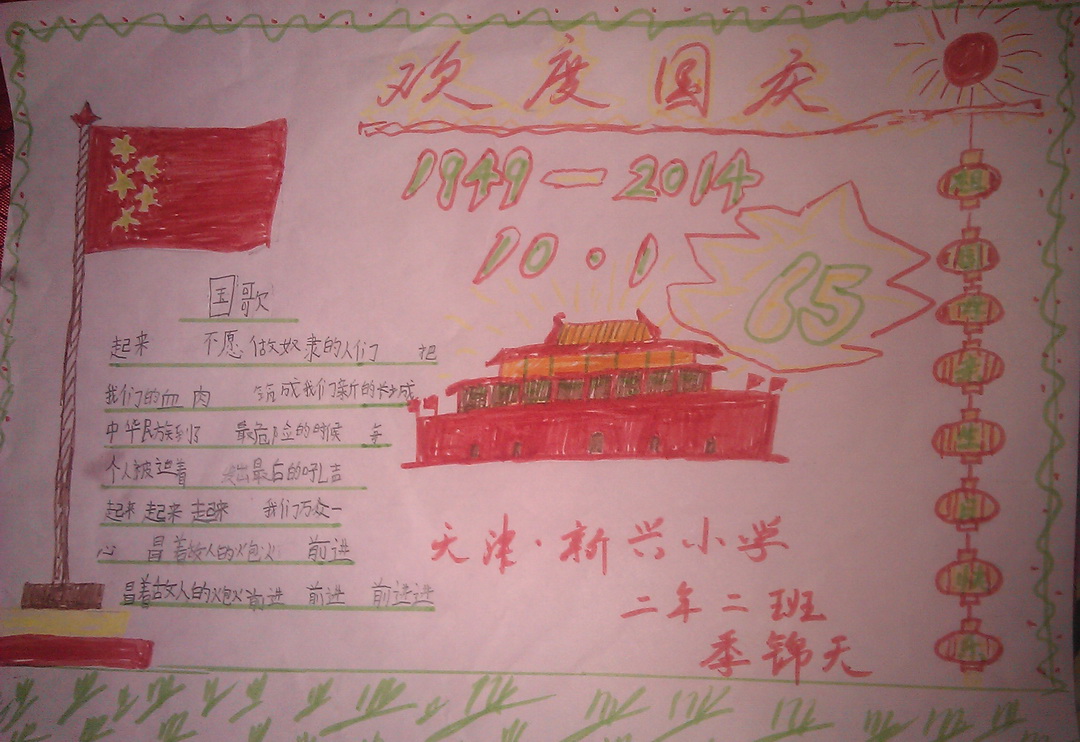 欢度国庆
1949—2014
10·1
65
国歌
起来 不愿做奴隶的人们 把
我们的血肉 筑成我们新的长城
中华民族到了 最危险的时候 每
个人被迫着 发出最后的吼
起来 起来 起来 我们万众一
心 冒着敌人的炮火 前进
冒着敌人的炮火 前进 前进 前进进
天津·新兴小学
二年二班
季锦天
祖
国
母
亲
生
日
快
乐